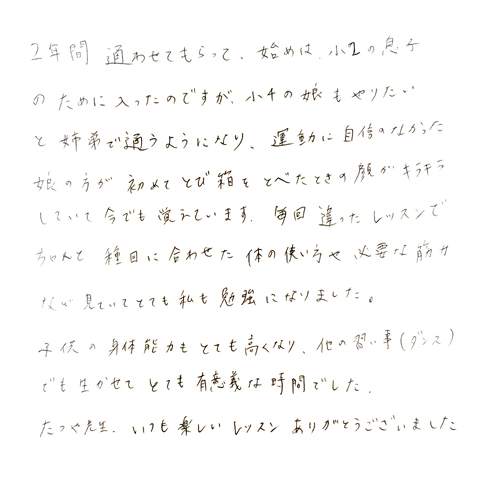 2年間 通わせてもらって、始めは、小2の息子
のために入ったのですが、小4の娘もやりたい
と姉弟で通うようになり、運動に自信のなかった
娘の方が初めてとび箱をとべたときの顔がキラキラ
していて今でも覚えています。毎回違ったレッスンで
ちゃんと種目に合わせた体の使い方や必要な筋力
など見ていてとても私も勉強になりました。
子供の身体能力もとても高くなり、他の習い事(ダンス)
でも生かせてとても有意義な時間でした。
たつや先生、いつも楽しいレッスンありがとうございました